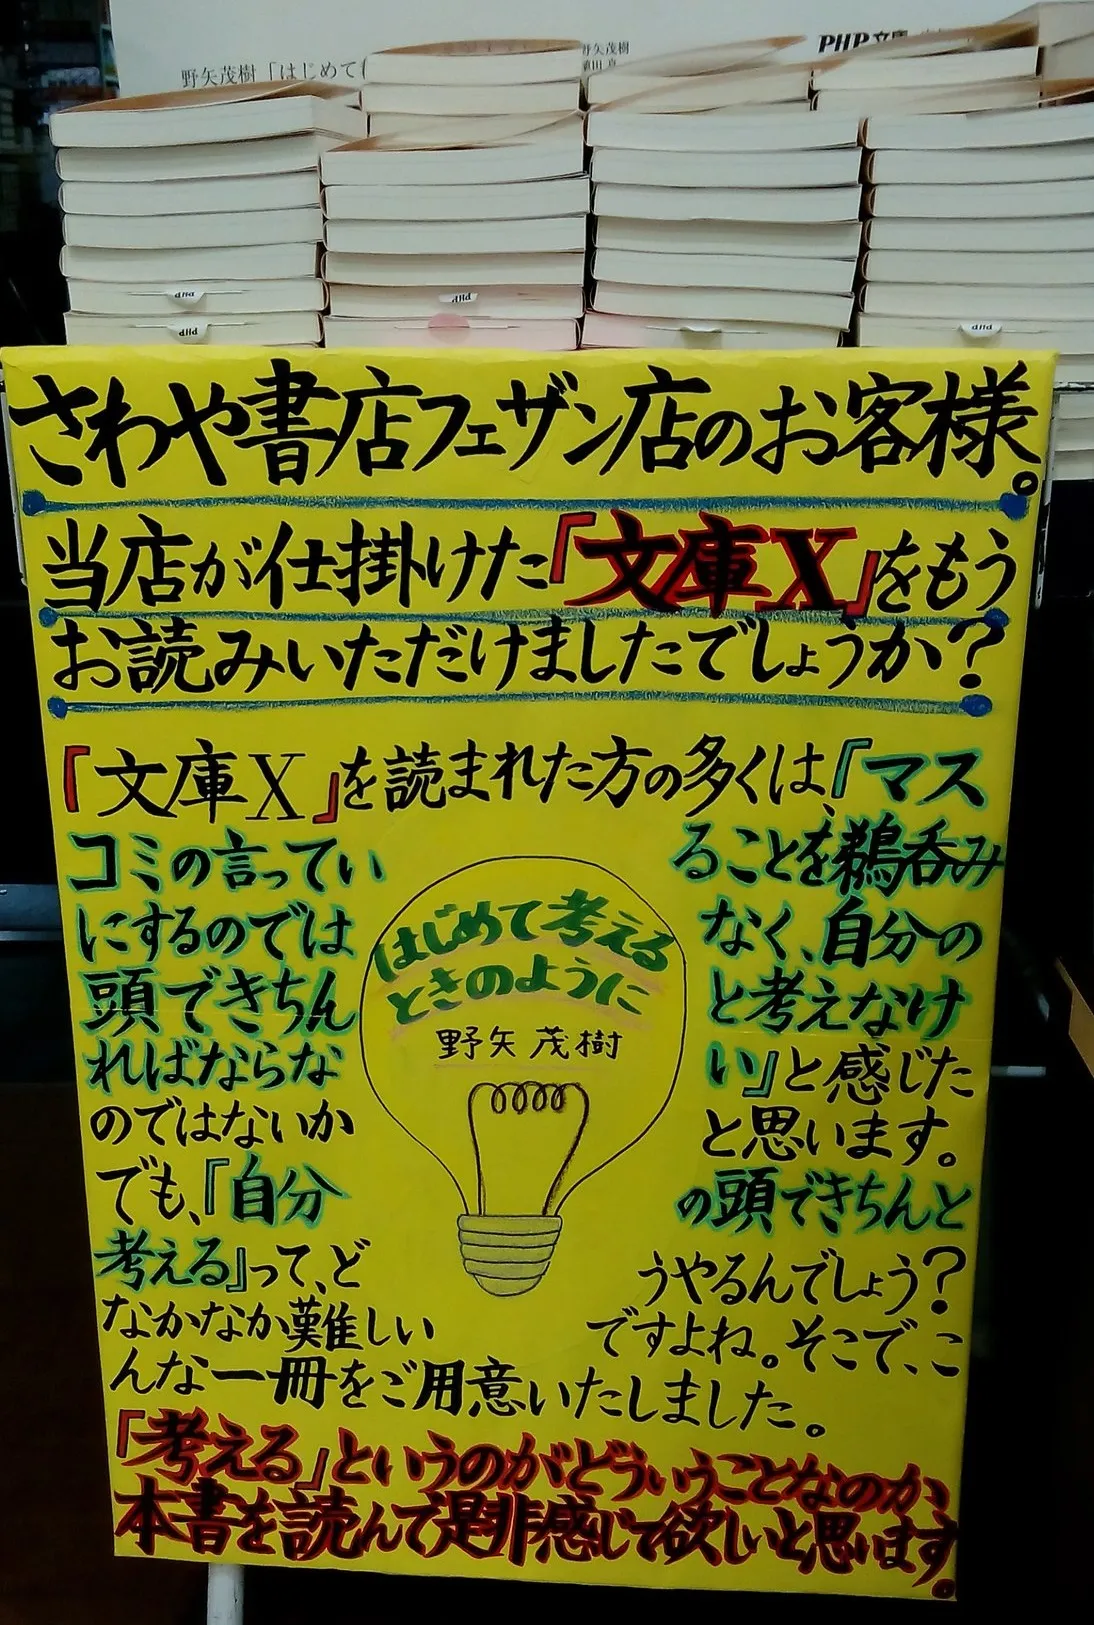 PHP文庫
野矢茂樹
野矢茂樹「はじめて
PHP
PHP
PHP
PHP
さわや書店フェザン店のお客様。
当店が仕掛けた「文庫X」をもう
お読みいただけましたでしょうか?
「文庫X」を読まれた方の多くは、『マス
コミの言っていることを、鵜呑み
にするのではなく、自分の
頭できちんと考えなけ
ればならない』と感じた
のではないかと思います。
でも、『自分の頭できちんと
考える』って、どうやるんでしょう?
なかなか難しいですよね。そこで、こ
んな一冊をご用意いたしました。
はじめて考える
ときのように
野矢茂樹
「考える」というのがどういうことなのか、
本書を読んで是非感じて欲しいと思います。